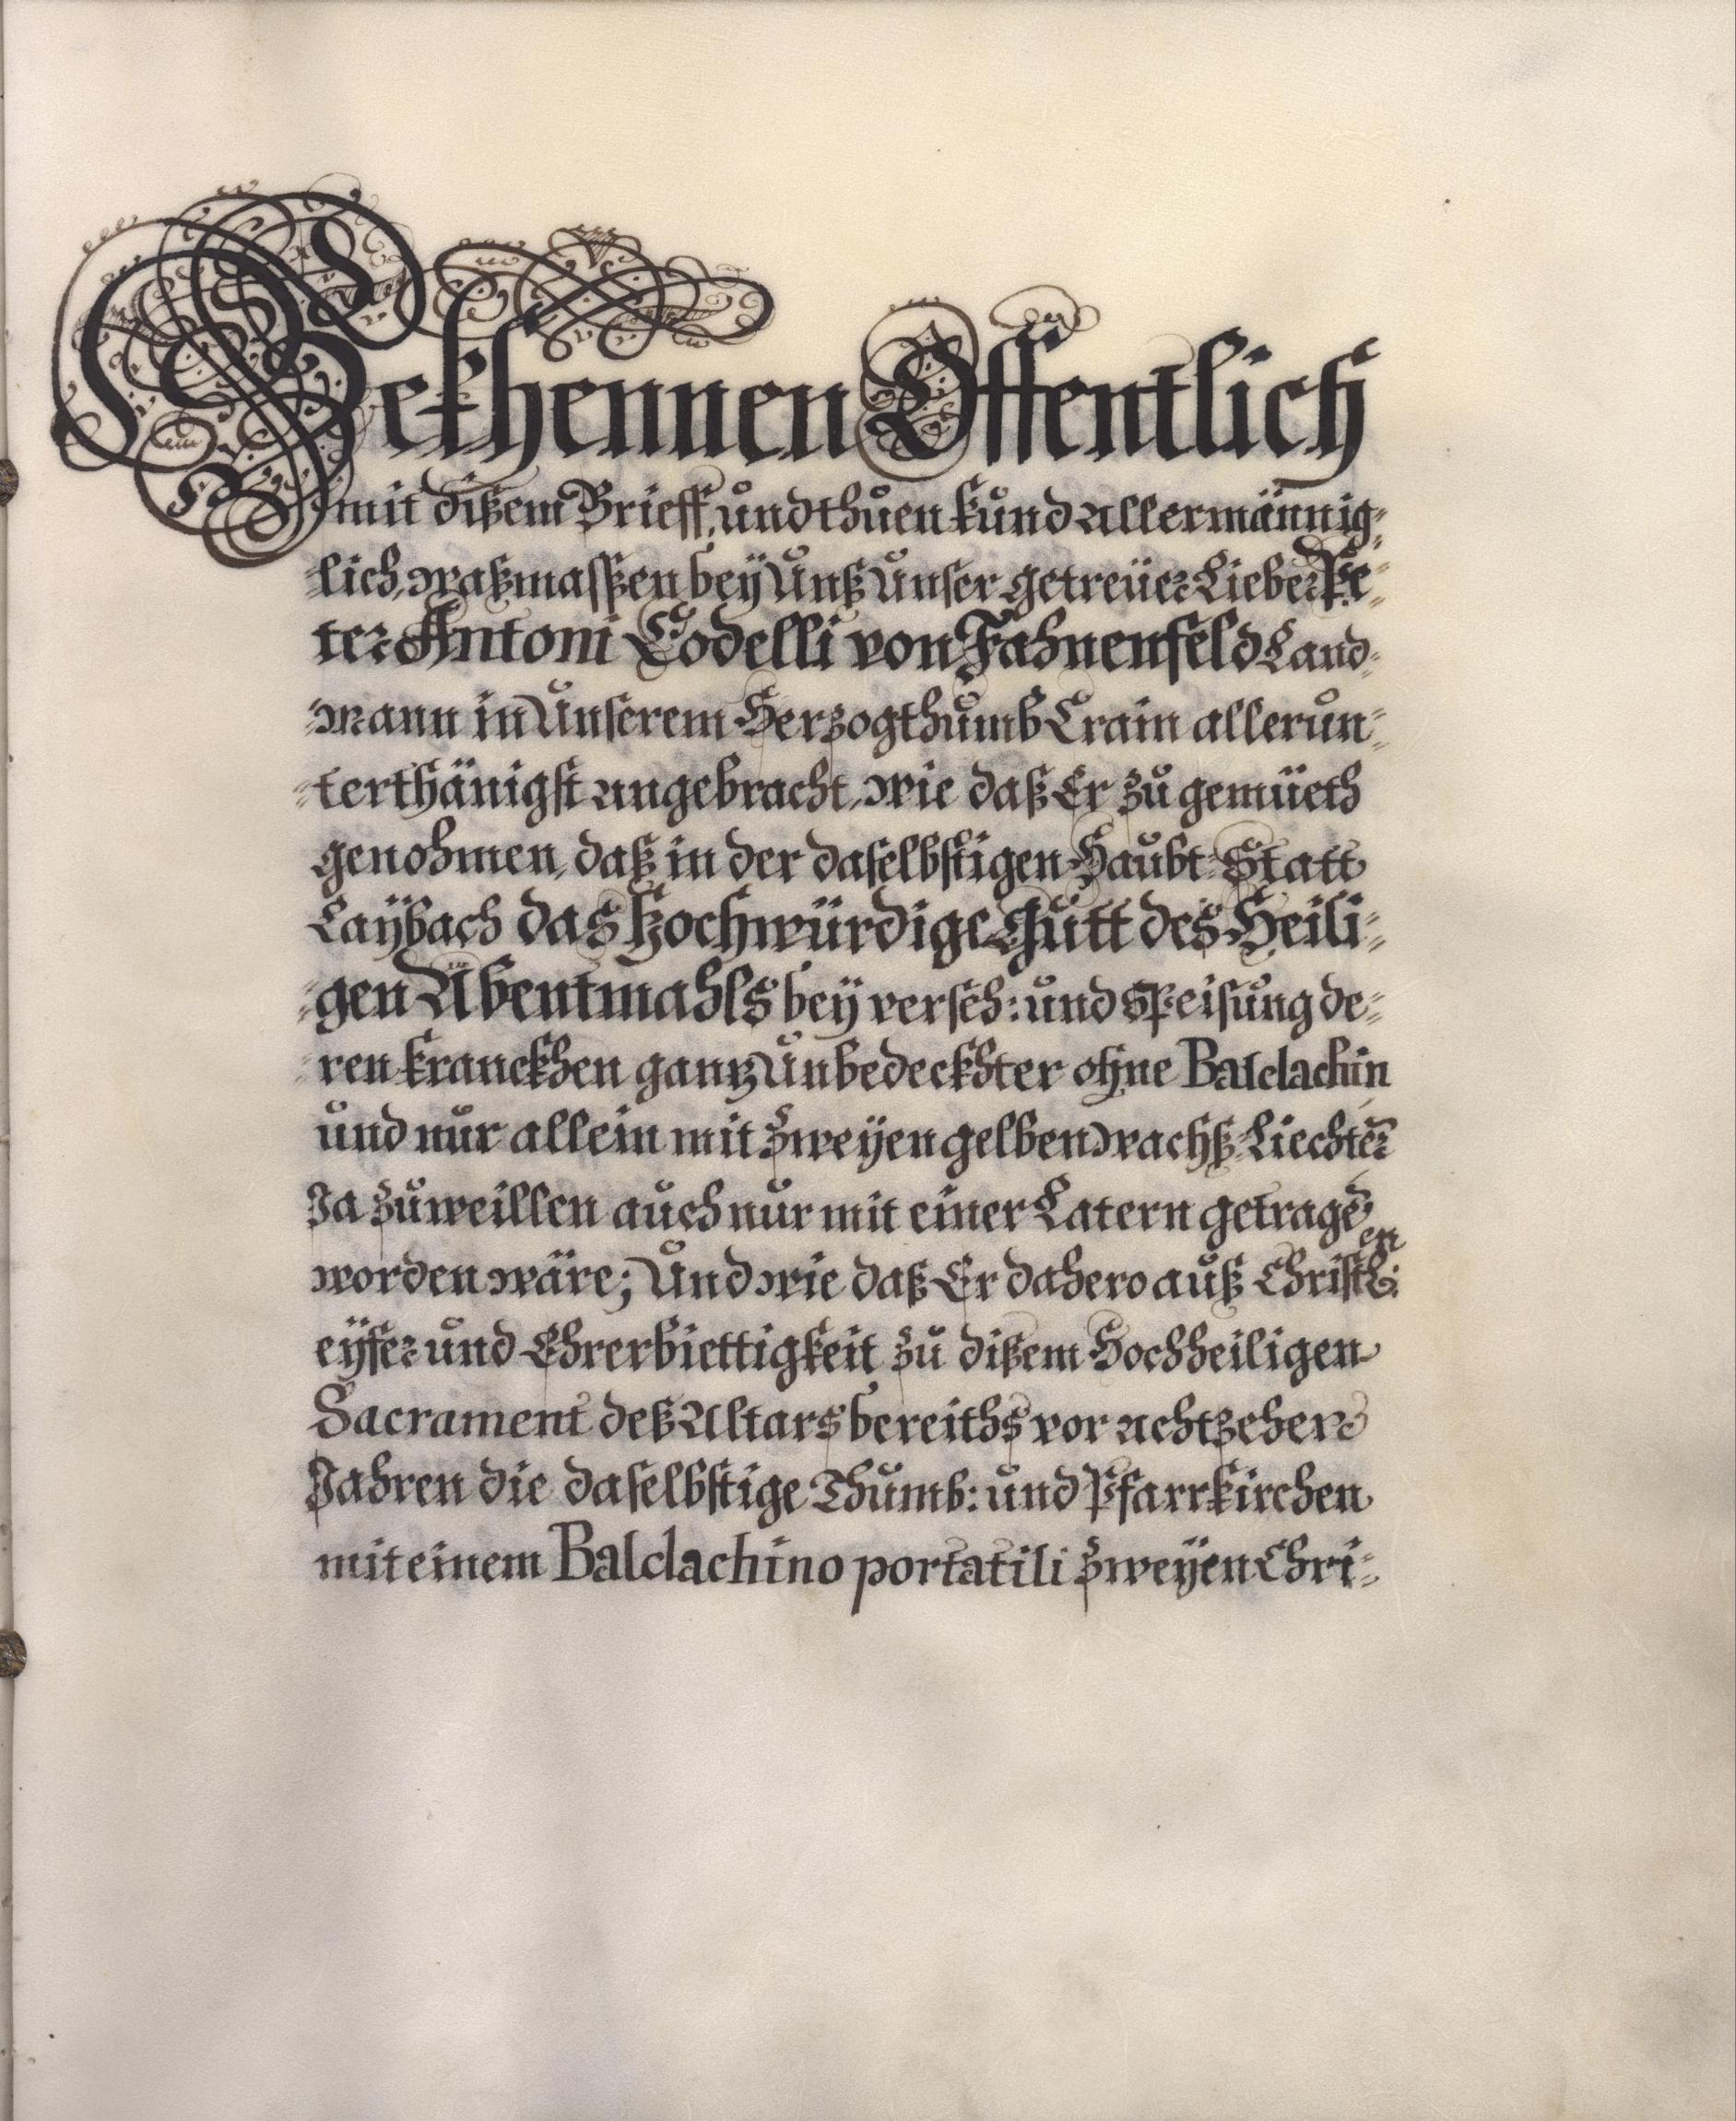 Bekhennen Öffentlich
mit dißem Brieff, und thuen kund Allermännig-
lich, waßmassßen beÿ Unß Unser getreüer Lieber Pe-
ter Antoni Codelli von Fahnenfeld Land-
mann in Unserem Herzogthumb Crain allerun-
terthänigst angebracht, wie daß Er zu gemüeth
genohmen, daß in der daselbstigen Haubt-Statt
Laÿbach das Hochwürdige Gutt des Heili-
gen Abentmahls beÿ verseh: und Speisung de-
ren kranckhen gantz Unbedeckhter ohne Baldachin
und nur allein mit zweÿen gelben wachß-Liechter
Ja zuweillen auch nur mit einer Latern getragē
worden wäre; Und wie daß Er dahero auß Christl:en
eÿfer und Ehrerbiettigkeit zu dißem Hochheiligen
Sacrament deß Altars bereiths vor achtzehen
Jahren die daselbstige Thumb: und Pfarrkirchen
mit einem Baldachino portatili zweÿen Chri-